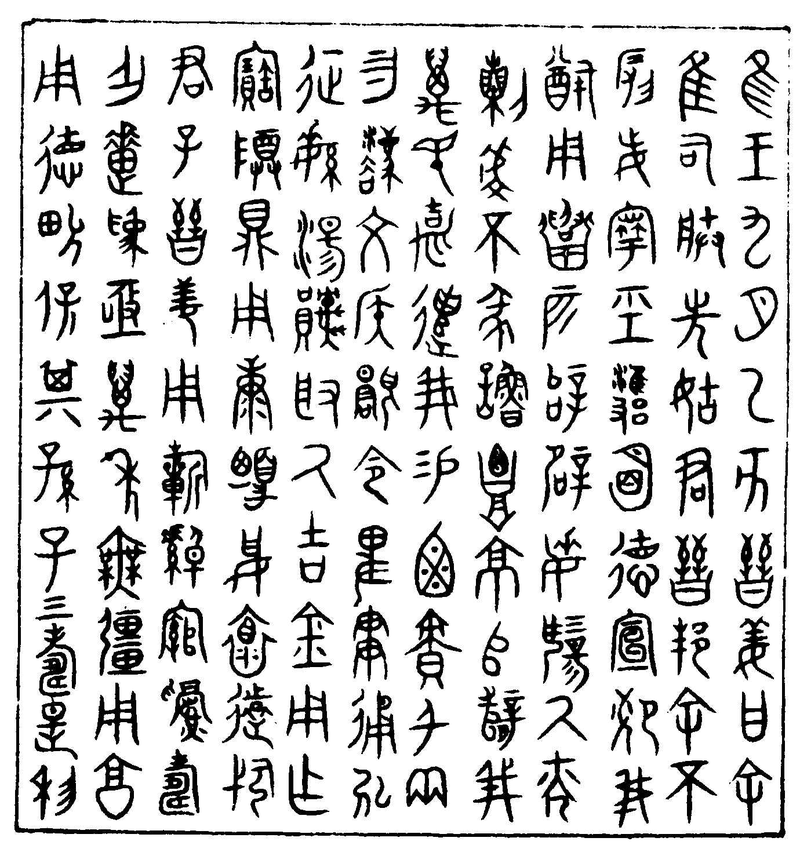 隹王九月乙亥晉姜曰余
隹司朕先姑君晉邦余不
叚妄寧巠雝明德宣卹我
猷用召匹辝辟敏揚氒光
剌虔不彖魯覃京師辥我
萬民嘉遣我易鹵責千兩
勿廢文侯顯令卑貫通弘
征繁湯取氒吉金用乍
寶尊鼎用康柔妥懷遠邇
君子晉姜用祈綽綰眉壽
乍疐為亟萬年無疆用享
用德畯保其孫子三壽是利